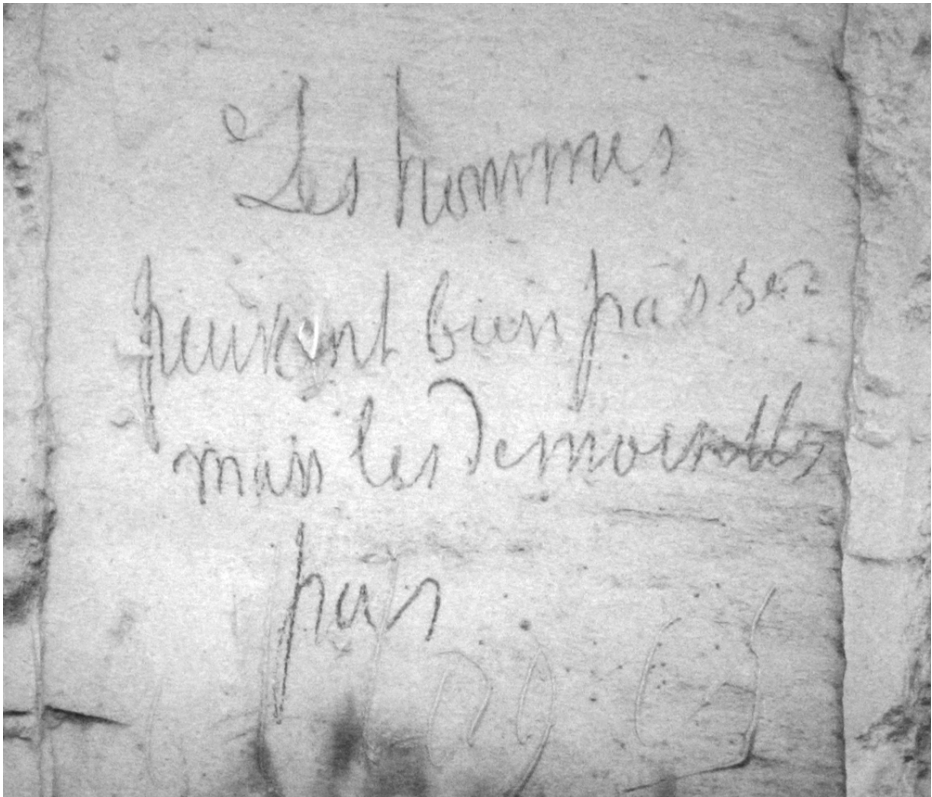 Les hommes
peuvent bien passer
mais les Demoiselles
pas